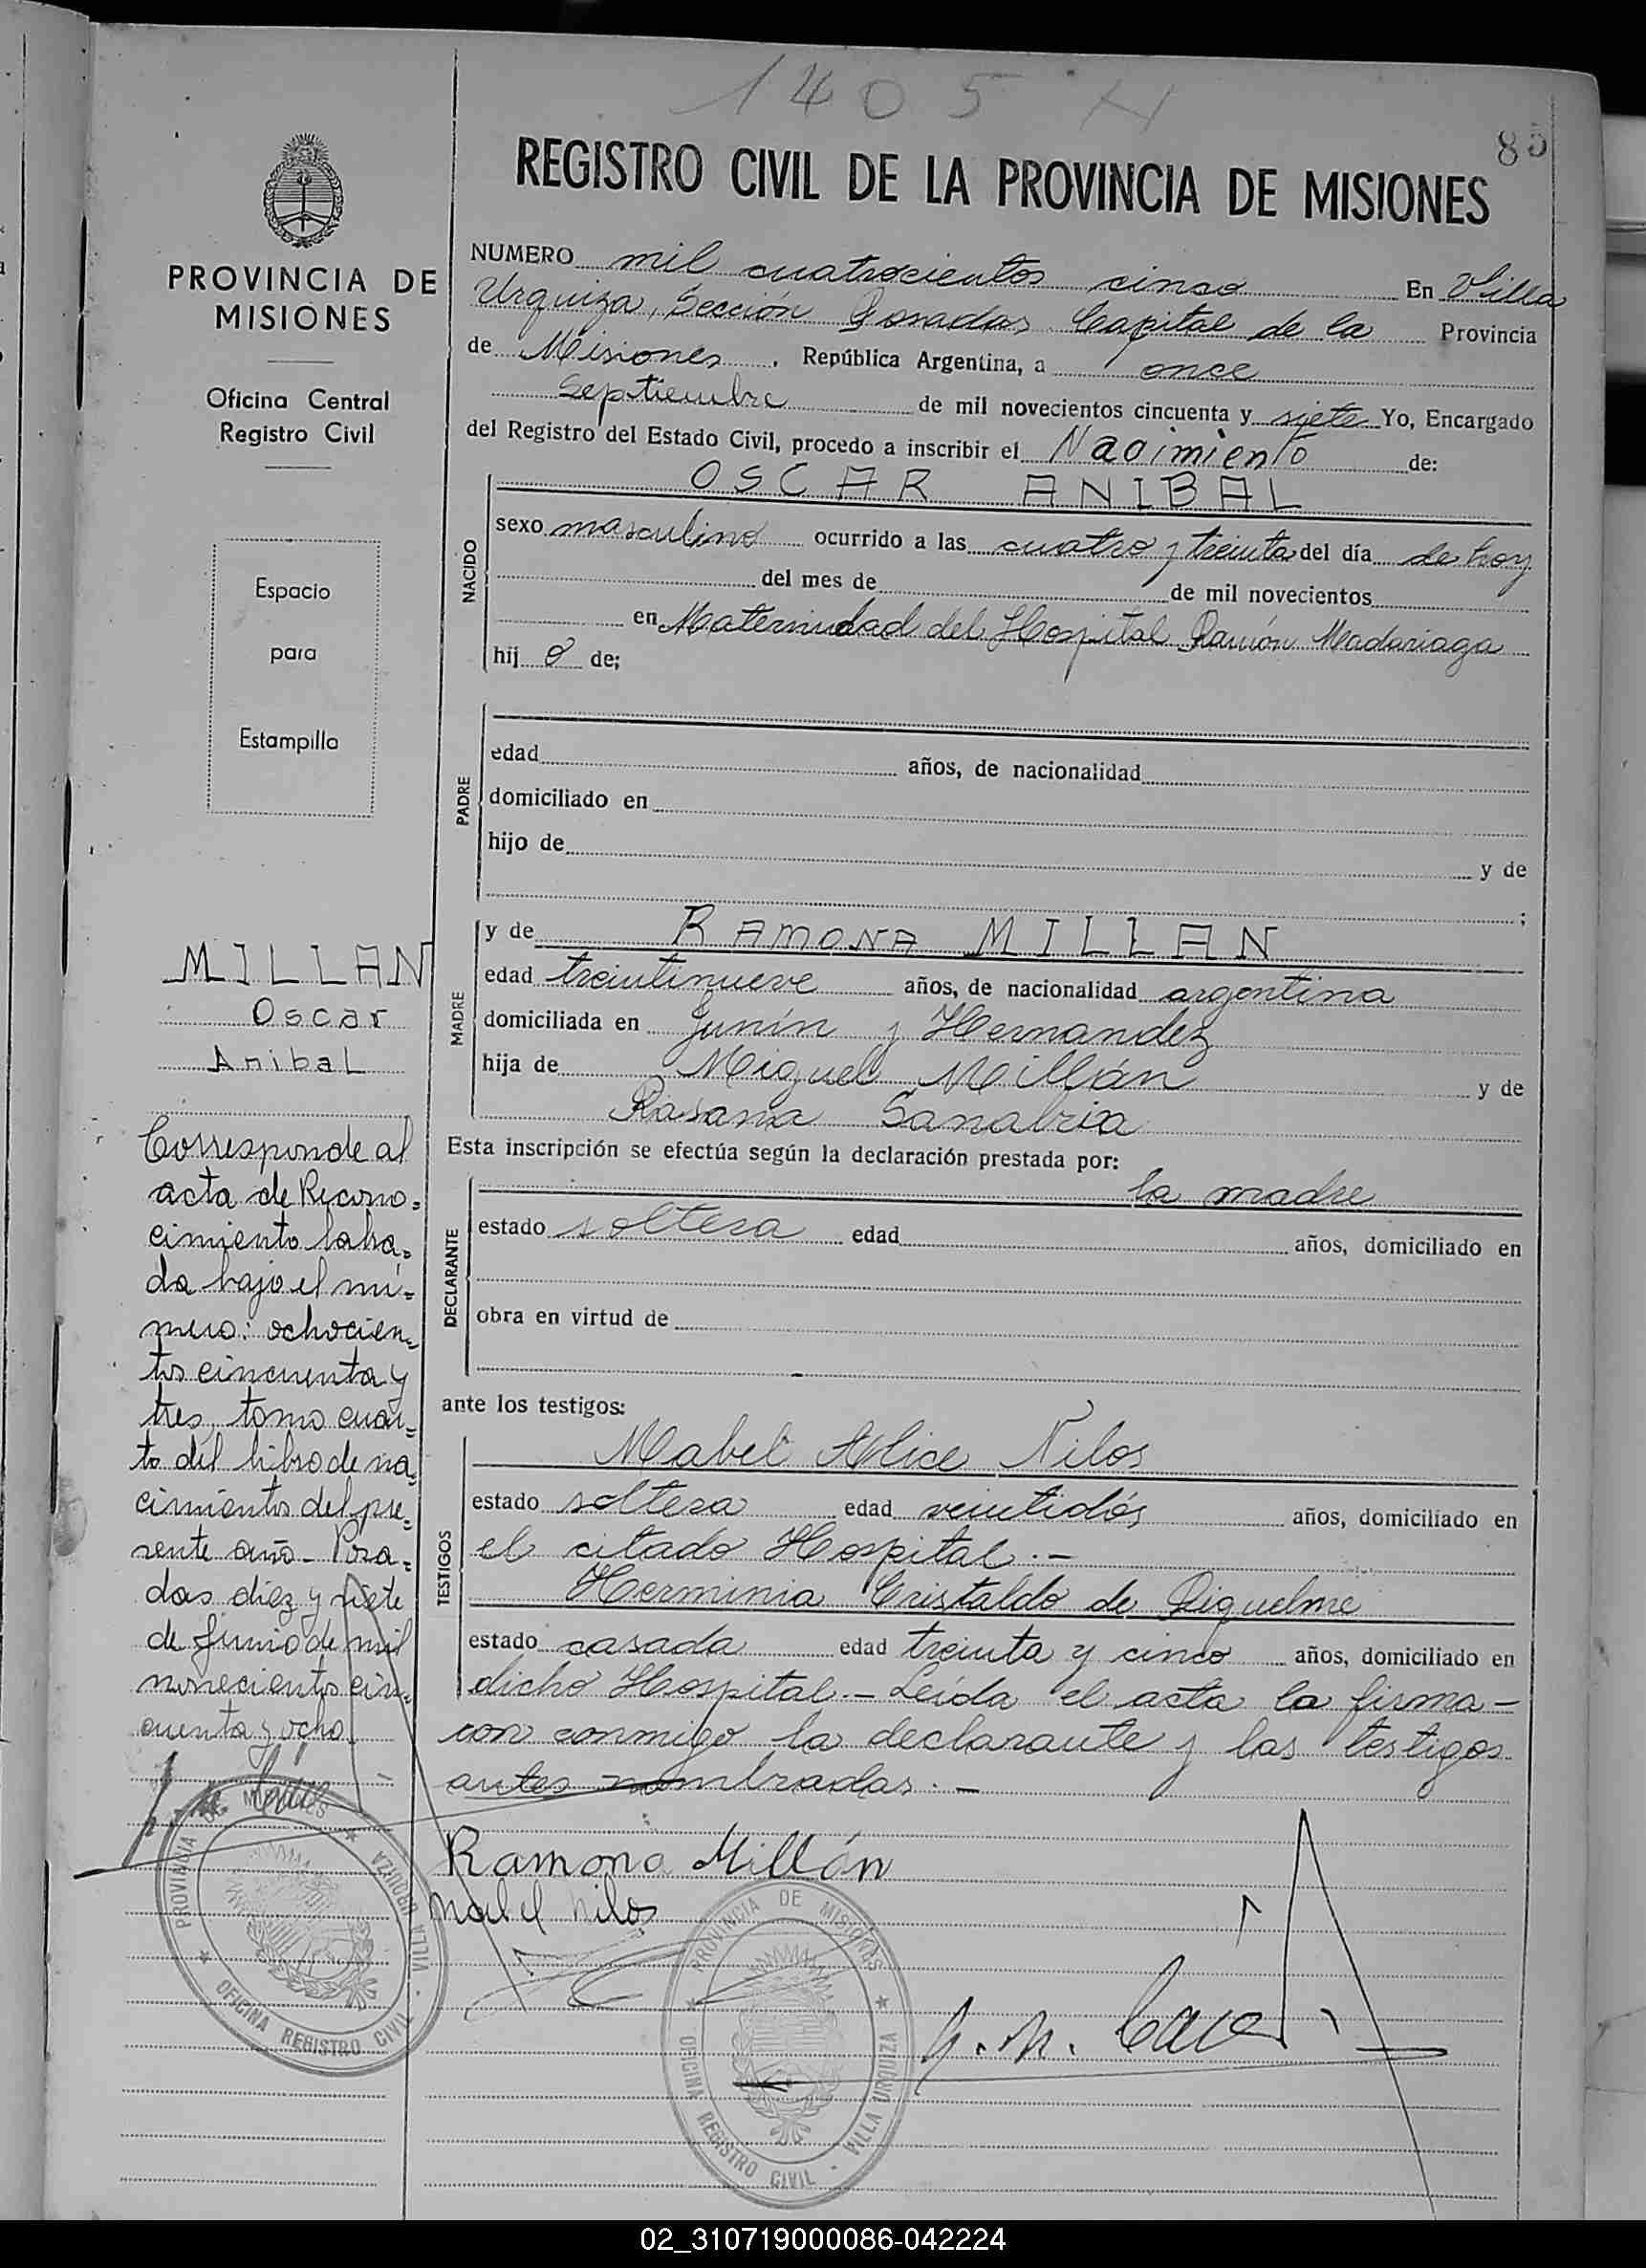 1405 N
85
REGISTRO CIVIL DE LA PROVINCIA DE MISIONES
PROVINCIA DE
MISIONES
Oficina Central
Registro Civil
Espacio
para
Estampilla
MILLAN
Oscar
Anibal
Corresponde al
acta de Recono=
cimiento labra=
da bajo el nú=
mero: ochocien=
tos cincuenta y
tres, tomo cuar=
to del libro de na=
cimientos del pre=
sente año - Posa=
das diez y siete
de junio de mil
novecientos cin=
cuenta y ocho
NUMERO mil cuatrocientos cinco En Villa
Urquiza, Sección Posadas Capital de la Provincia
de Misiones, República Argentina, a once
Septiembre de mil novecientos cincuenta y siete Yo, Encargado
del Registro del Estado Civil, procedo a inscribir el Nacimiento de:
NACIDO
OSCAR ANIBAL
sexo masculino ocurrido a las cuatro y treinta del día de hoy
del mes de de mil novecientos
en Maternidad del Hospital Ramón Madariaga
hij o de;
PADRE
edad años, de nacionalidad
domiciliado en
hijo de y de
;
MADRE
y de RAMONA MILLAN
edad treintinueve años, de nacionalidad argentina
domiciliada en Junín y Hernandez
hija de Miguel Millán y de
Rosana Sanabria
Esta inscripción se efectúa según la declaración prestada por:
DECLARANTE
la madre
estado soltera edad años, domiciliado en
obra en virtud de
ante los testigos:
TESTIGOS
Mabel Alice Nilos
estado soltera edad veintidós años, domiciliado en
el citado Hospital.-
Herminia Cristaldo de Riquelme
estado casada edad treinta y cinco años, domiciliado en
dicho Hospital.- Leída el acta la firma-
ron conmigo la declarante y las testigos
antes nombradas.-
Ramona Millán
Mabel Nilos
PROVINCIA DE MISIONES
OFICINA REGISTRO CIVIL - VILLA URQUIZA
PROVINCIA DE MISIONES
OFICINA REGISTRO CIVIL - VILLA URQUIZA
02_310719000086-042224